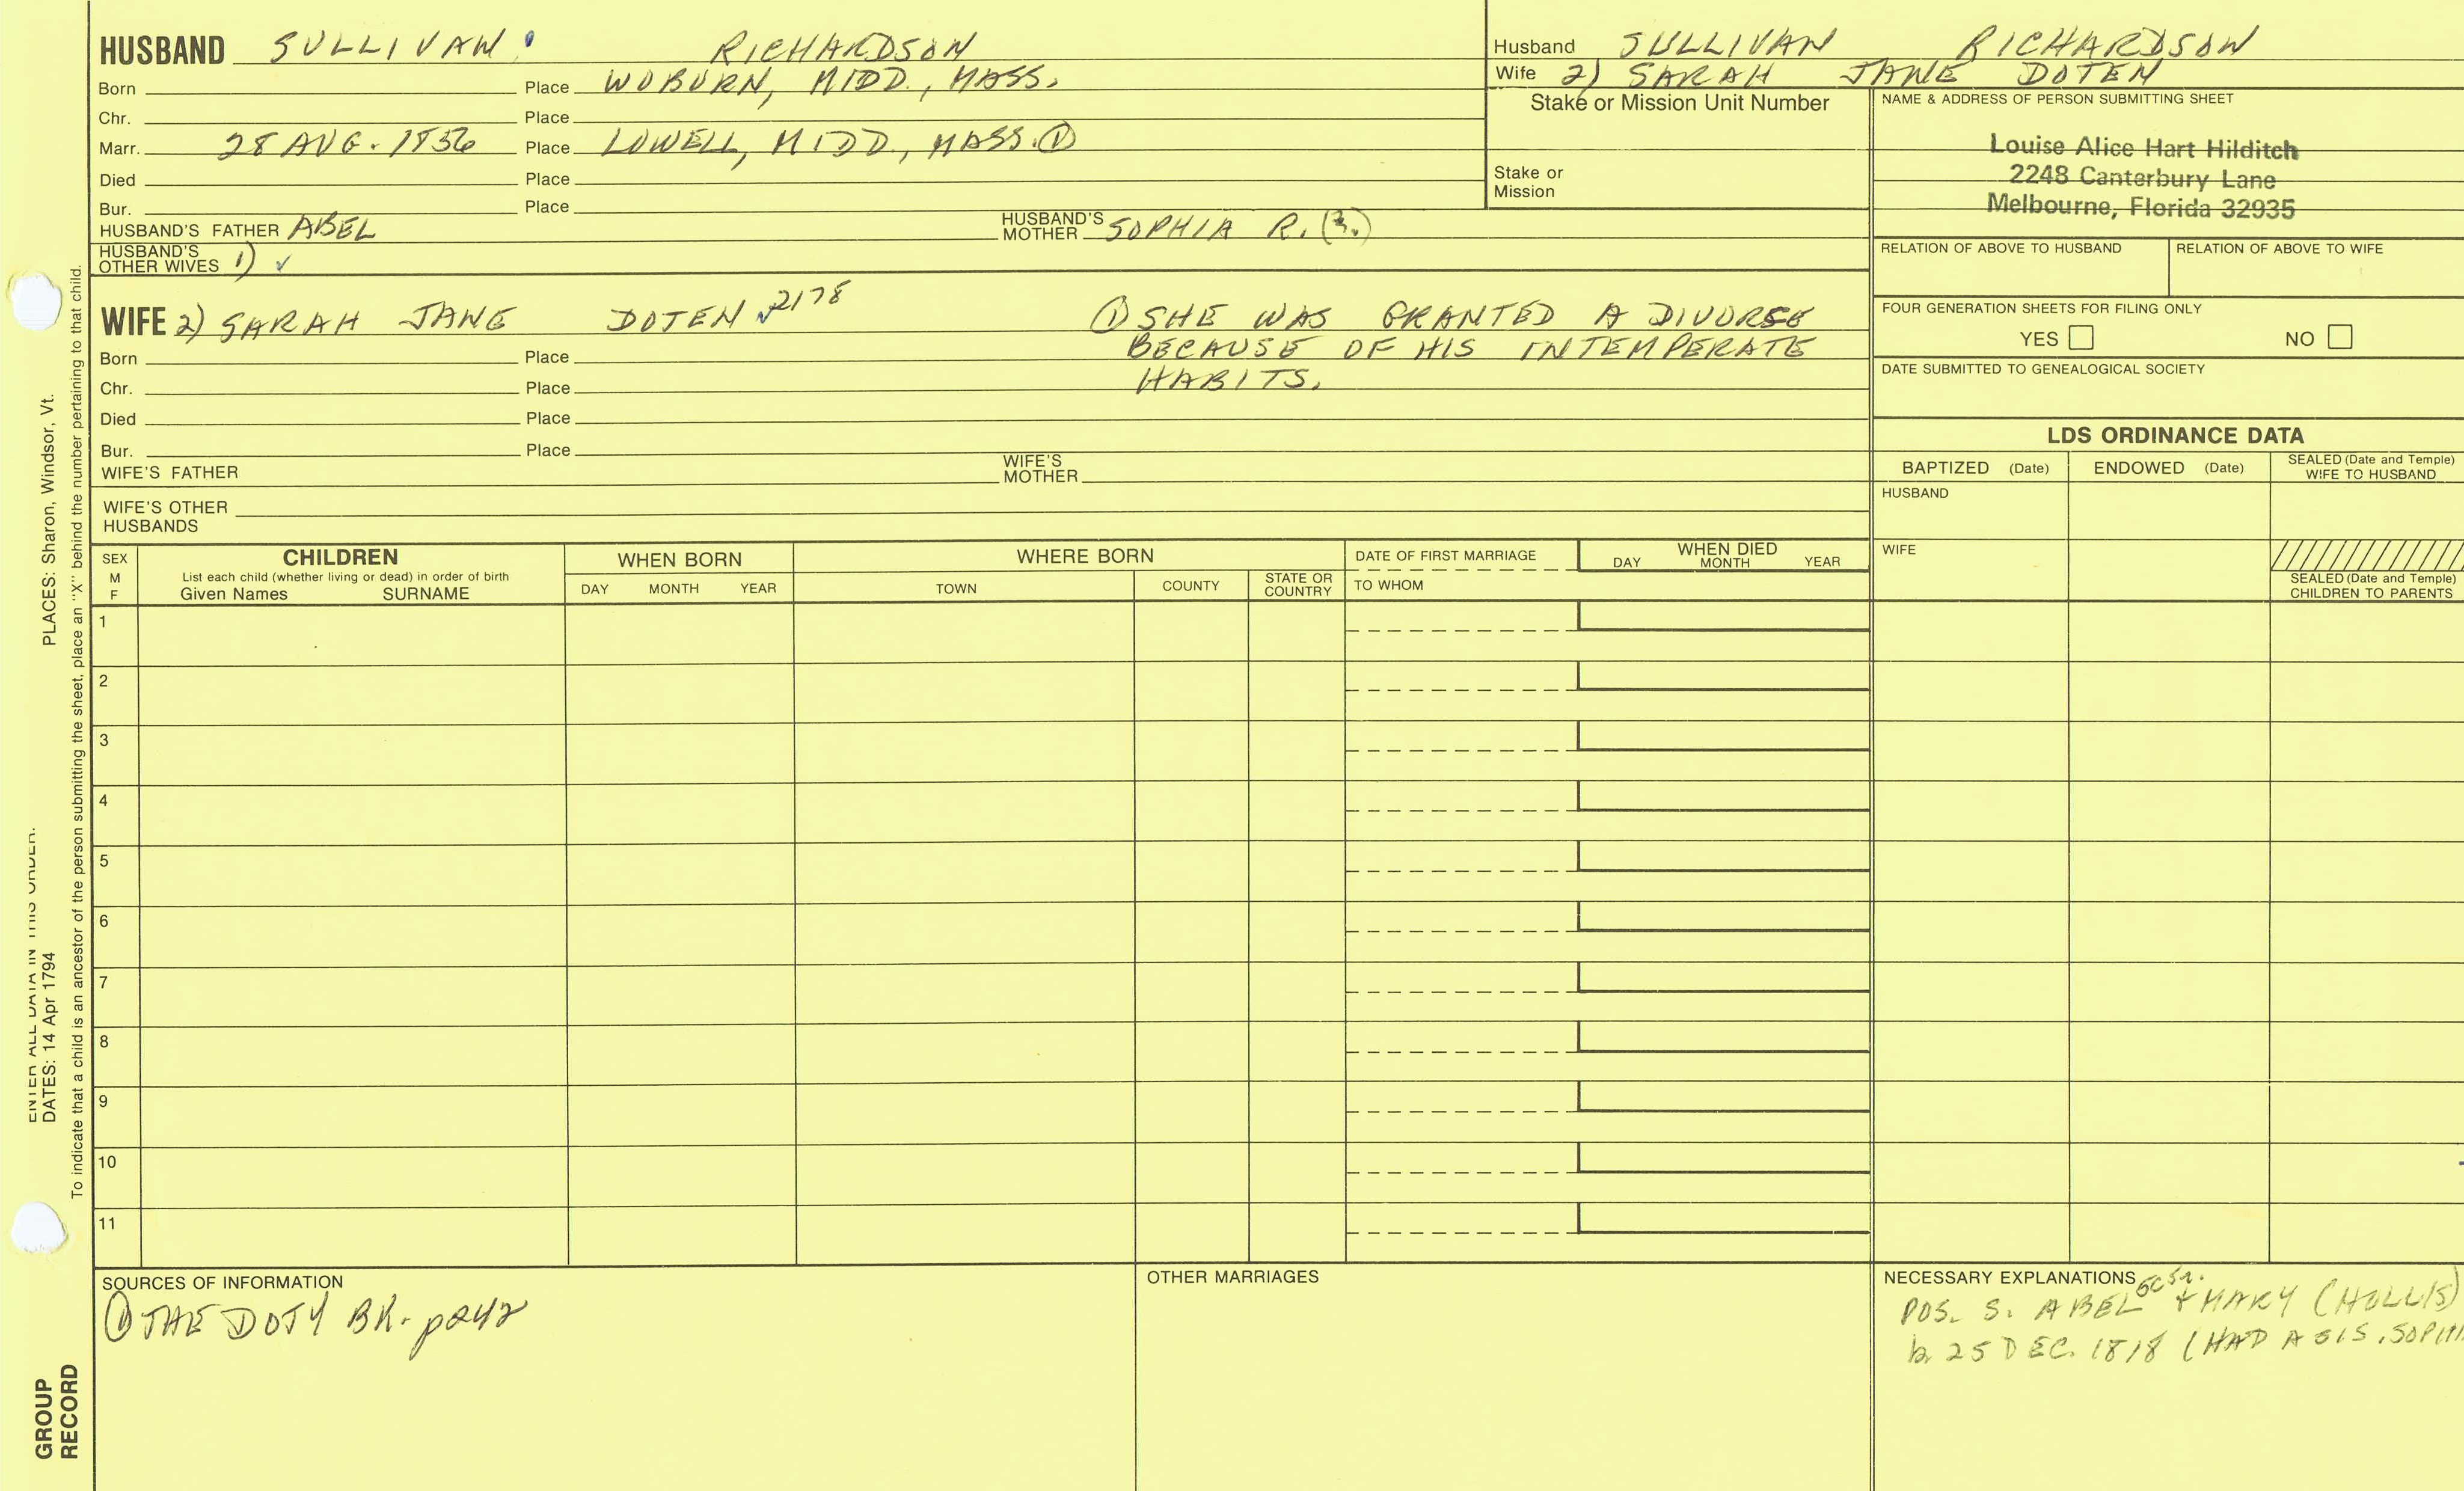 HUSBAND SULLIVAN RICHARDSON
Born Place WOBURN, MIDD., MASS.
Chr. Place
Marr. 28 AUG. 1856 Place LOWELL, MIDD., MASS. ①
Died Place
Bur. Place
HUSBAND'S FATHER ABEL HUSBAND'S MOTHER SOPHIA R. (?)
HUSBAND'S OTHER WIVES 1) ✓
Husband SULLIVAN RICHARDSON
Wife 2) SARAH JANE DOTEN
Stake or Mission Unit Number
Stake or
Mission
NAME & ADDRESS OF PERSON SUBMITTING SHEET
Louise Alice Hart Hilditch
2248 Canterbury Lane
Melbourne, Florida 32935
RELATION OF ABOVE TO HUSBAND RELATION OF ABOVE TO WIFE
FOUR GENERATION SHEETS FOR FILING ONLY
YES NO
DATE SUBMITTED TO GENEALOGICAL SOCIETY
WIFE 2) SARAH JANE DOTEN ✓2178
① SHE WAS GRANTED A DIVORSE
BECAUSE OF HIS INTEMPERATE
HABITS.
Born Place
Chr. Place
Died Place
Bur. Place
WIFE'S FATHER WIFE'S MOTHER
WIFE'S OTHER
HUSBANDS
LDS ORDINANCE DATA
BAPTIZED (Date) ENDOWED (Date) SEALED (Date and Temple)
WIFE TO HUSBAND
HUSBAND
WIFE
SEALED (Date and Temple)
CHILDREN TO PARENTS
SEX
M
F
CHILDREN
List each child (whether living or dead) in order of birth
Given Names SURNAME
WHEN BORN
DAY MONTH YEAR
WHERE BORN
TOWN COUNTY STATE OR COUNTRY
DATE OF FIRST MARRIAGE
TO WHOM
WHEN DIED
DAY MONTH YEAR
1
2
3
4
5
6
7
8
9
10
11
SOURCES OF INFORMATION
① THE DOTY BK. p242
OTHER MARRIAGES
NECESSARY EXPLANATIONS
POS. S. ABEL + MARY (HOLLIS)
b 25 DEC. 1818 (HAD A SIS. SOPHI
ENTER ALL DATA IN THIS ORDER:
DATES: 14 Apr 1794 PLACES: Sharon, Windsor, Vt.
To indicate that a child is an ancestor of the person submitting the sheet, place an "X" behind the number pertaining to that child.
GROUP
RECORD